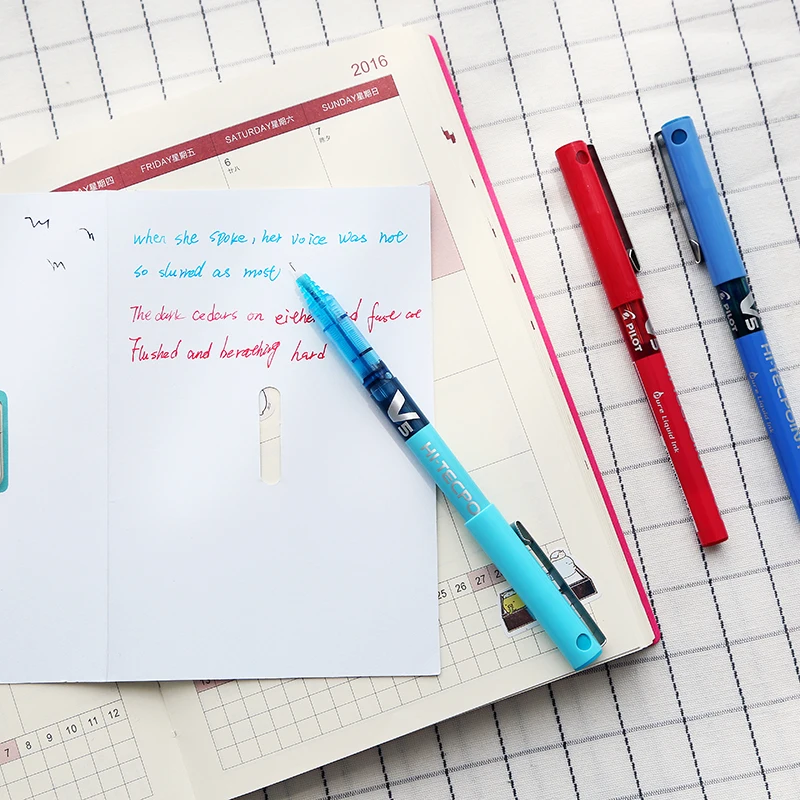 2016
AY星期四 FRIDAY星期五 SATURDAY星期六 SUNDAY星期日
6 7
廿八 除夕
when she spoke, her voice was not
so slurred as most
The dark cedars on either d
Flushed and hard
V5
HI-TECPO
PILOT V5
Pure Liquid Ink
PILOT V5
HI-TECPOINT
Pure Liquid Ink
25 26 27
7 8 9 10 11 12